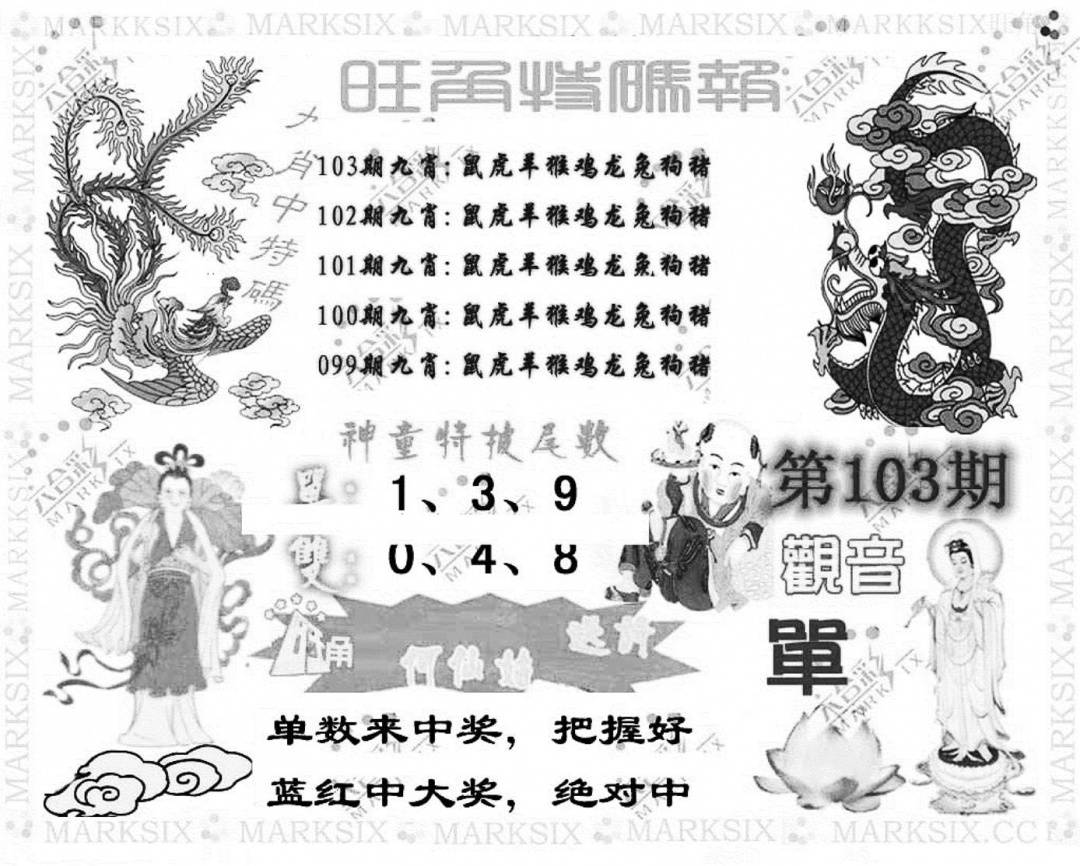 MARKSIX MARKKSIX MARKSIX MARKSIX MARKKSIX
旺角特碼報
九肖中特碼
103期九肖:鼠虎羊猴鸡龙兔狗猪
102期九肖:鼠虎羊猴鸡龙兔狗猪
101期九肖:鼠虎羊猴鸡龙兔狗猪
100期九肖:鼠虎羊猴鸡龙兔狗猪
099期九肖:鼠虎羊猴鸡龙兔狗猪
神童特披尾數
單: 1、3、9
雙: 0、4、8
第103期
觀音
單
何仙姑
单数来中奖，把握好
蓝红中大奖，绝对中
MARKSIX MARKSIX MARKSIX MARKSIX MARKSIX.CC